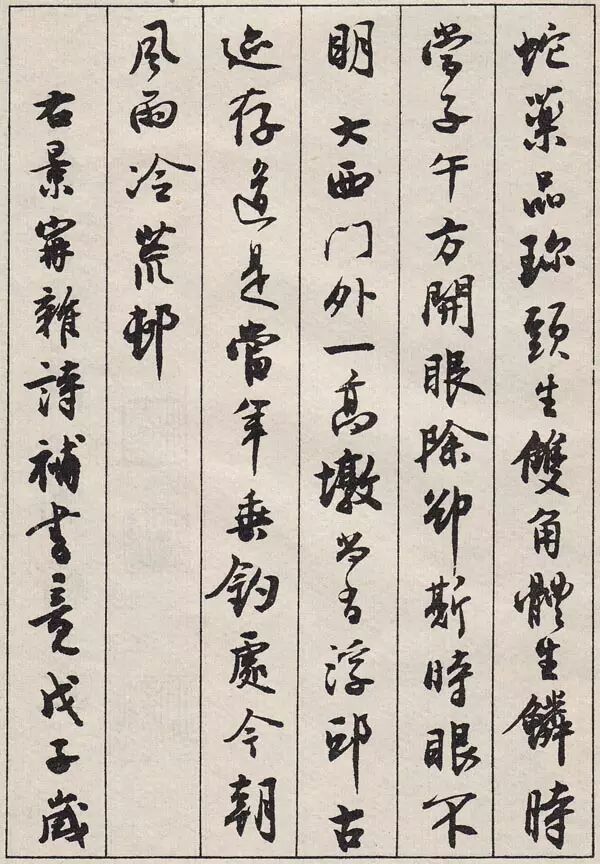 蛇藥品珎頭生雙角體生鱗時
當子午方開眼除卻斯時眼不
明 大西門外一高墩尚有浮邱古
迹存道是當年垂釣處今朝
風雨冷荒邨
右景甯雜詩補書竟戊子歲